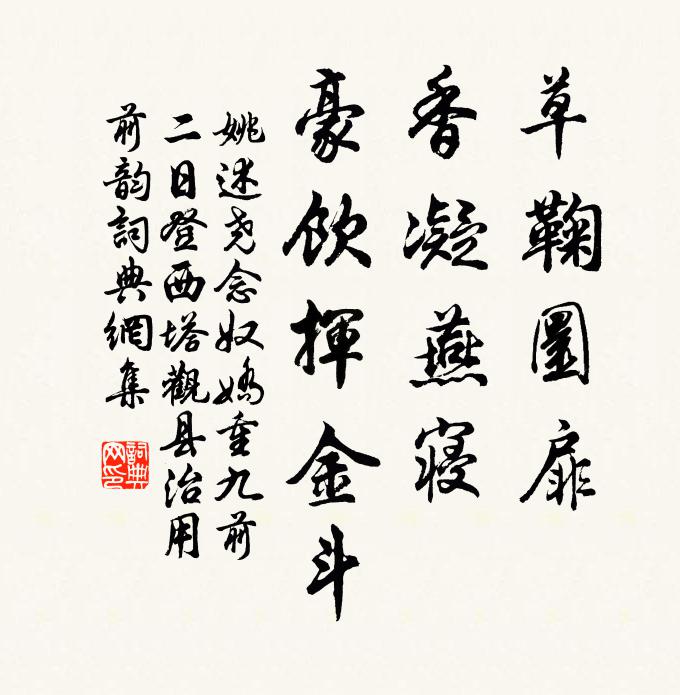 草鞠圜扉
香凝燕寝
豪飲揮金斗
姚述尧念奴嬌重九前
二日登西塔觀县治用
前韵詞典網集
詞典
网印